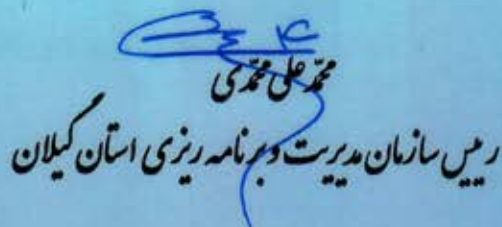 محمّد علی محمّدی
رییس سازمان مدیریت و برنامه ریزی استان گیلان